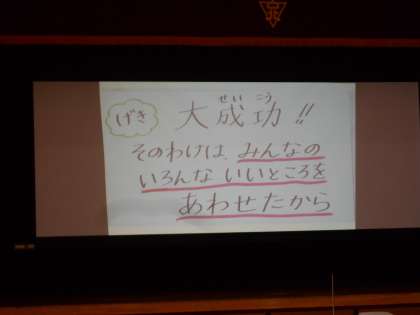 げき
大成功!!
せいこう
そのわけは、みんなの
いろんないいところを
あわせたから